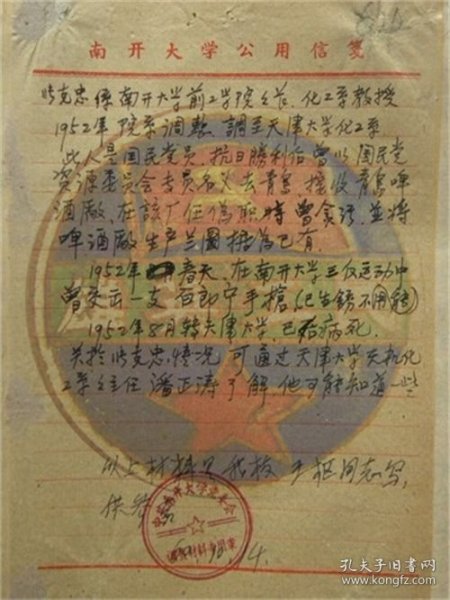 南开大学公用信笺
张克忠係南开大学前工学院院长、化工系教授
1952年院系调整、調至天津大学化工系
此人是国民党员、抗日勝利后曾以国民党
资源委员会专员名义去青岛接收青岛啤
酒廠,在該厂任偽职時曾贪污,並将
啤酒廠生产兰圖据為己有
1952年春天、在南开大学三反运动中
曾交出一支白郎宁手槍(已生銹不用)
1952年8月转天津大学,已病死.
关於张克忠情况可通过天津大学无机化
工系主任潘正涛了解,他可能知道一些
以上材料是我校于 同志写,
供参
南开大学
孔夫子旧书网
www.kongfz.com